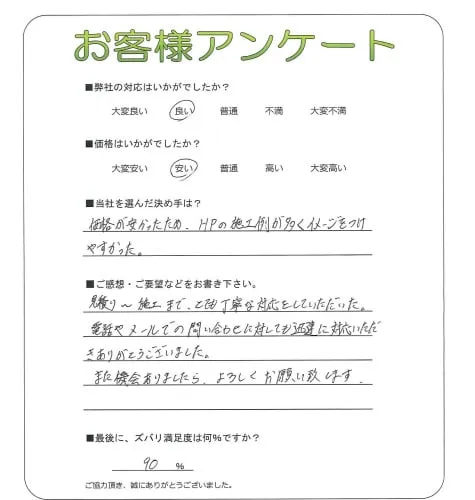 お客様アンケート
■弊社の対応はいかがでしたか？
大変良い 良い 普通 不満 大変不満
■価格はいかがでしたか？
大変安い 安い 普通 高い 大変高い
■当社を選んだ決め手は？
価格が安かったため、HPの施工例が多くイメージをつけ
やすかった。
■ご感想・ご要望などをお書き下さい。
見積り〜施工まで、とても丁寧な対応をしていただいた。
電話やメールでの問い合わせに対しても迅速に対応いただ
きありがとうございました。
また機会ありましたら、よろしくお願い致します。
■最後に、ズバリ満足度は何％ですか？
90 ％
ご協力頂き、誠にありがとうございました。